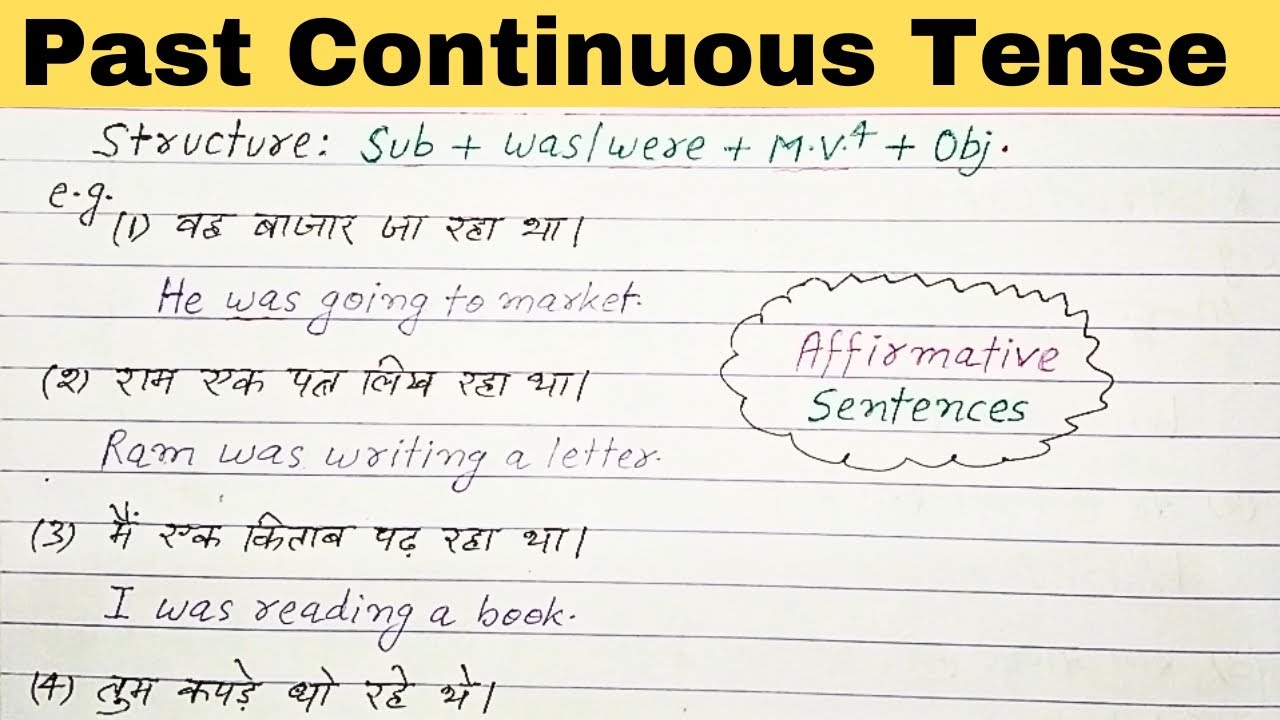 Past Continuous Tense
Structure: Sub + was/were + M.V.⁴ + Obj.
e.g.
(1) वह बाजार जा रहा था।
He was going to market.
(२) राम एक पत्र लिख रहा था।
Affirmative
Sentences
Ram was writing a letter.
(3) मैं एक किताब पढ़ रहा था।
I was reading a book.
(4) तुम कपड़े धो रहे थे।